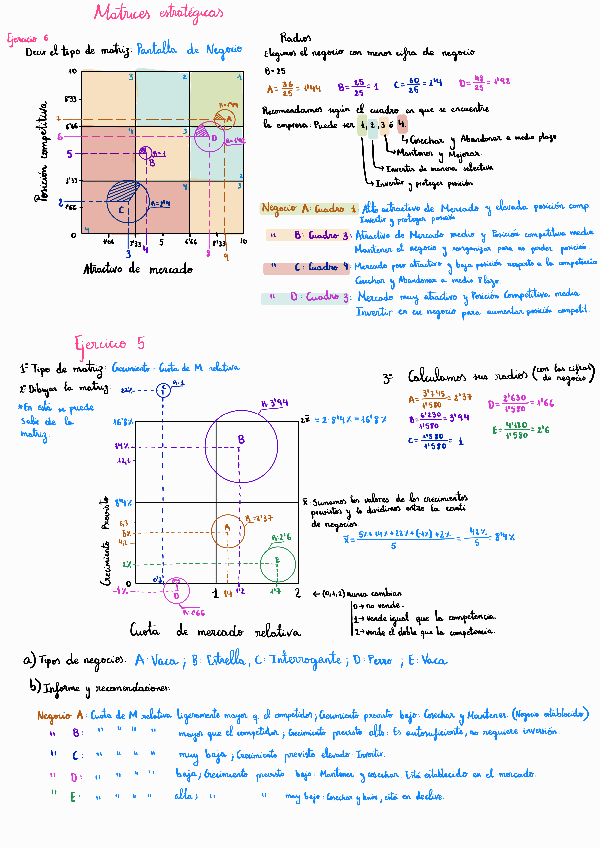 Matrices estratégicas
Ejercicio 6
Decir el tipo de matriz: Pantalla de Negocio
Posición competitiva
10
8'33
7
6'66
6
5
3'33
2
1'66
0
3
2
1
4
3
2
4
4
3
R=1'44
A
D
R=1'92
R=1
B
C
R=2'4
1'66
3'33
5
6'66
8'33
10
3
4
8
9
Atractivo de mercado
Radios
Elegimos el negocio con menos cifra de negocio
B=25
A= 36/25 = 1'44 B= 25/25 = 1 C= 60/25 = 2'4 D= 48/25 = 1'92
Recomendamos según el cuadro en que se encuentre
la empresa: Puede ser 1, 2, 3 ó 4
Cosechar y Abandonar a medio plazo
Mantener y Mejorar.
Invertir de manera selectiva
Invertir y proteger posición
Negocio A: Cuadro 1 Alto atractivo de Mercado y elevada posición comp.
Invertir y proteger posición
" B: Cuadro 3: Atractivo de Mercado medio y Posición competitiva media
Mantener el negocio y reorganizar para no perder posición.
" C: Cuadro 4: Mercado poco atractivo y baja posición respecto a la competencia
Cosechar y Abandonar a medio Plazo.
" D: Cuadro 2: Mercado muy atractivo y Posición Competitiva media
Invertir en ese negocio para aumentar posición competit.
Ejercicio 5
1º Tipo de matriz: Crecimiento - Cuota de M relativa
2º Dibujar la matriz
*En esta se puede
salir de la
matriz.
22%
C
R:1
16'8%
14%
8'4%
5%
4,2
2%
0
-1%
R:3'94
B
R=2'37
A
R:2'6
E
D
R:1'66
1
1'2
1'7
2
Crecimiento Previsto
Cuota de mercado relativa
2x̄ = 2·8'4% = 16'8%
3º Calculamos sus radios (con las cifras de negocio)
A= 3'745/1'580 = 2'37 D= 2'630/1'580 = 1'66
B= 6'230/1'580 = 3'94 E= 4'180/1'580 = 2'6
C= 1'580/1'580 = 1
x̄: Sumamos los valores de los crecimientos
previstos y lo dividimos entre la canti
de negocios
x̄ = 5%+14%+22%+(-1%)+2% / 5 = 42% / 5 = 8'4%
← (0,1,2) nunca cambian
0→ no vende.
1→ vende igual que la competencia.
2→ vende el doble que la competencia.
a) Tipos de negocios: A: Vaca ; B: Estrella, C: Interrogante ; D: Perro , E: Vaca
b) Informe y recomendaciones:
Negocio A: Cuota de M relativa ligeramente mayor q. el competidor; Crecimiento previsto bajo: Cosechar y Mantener. (Negocio establecido)
" B: " " " " mayor que el competidor; Crecimiento previsto alto: Es autosuficiente, no requiere inversión.
" C: " " " " muy baja ; Crecimiento previsto elevado: Invertir.
" D: " " " " baja; Crecimiento previsto bajo: Mantener y cosechar. Está establecido en el mercado.
" E: " " " " alta; " " muy bajo: Cosechar y está en declive.